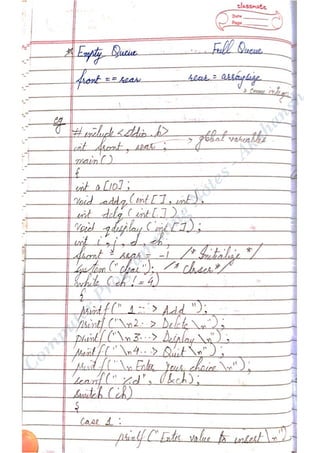 classmate
Date
Page
* Empty Queue Full Queue
front == rear rear = arraysize
> Some integer
eg
# include <stdio.h>
int front, rear ; > global variables
main()
{
int a[10];
void addq(int[], int);
int delq(int[]);
void qdisplay(int[]);
int i, j, d, ch;
front = rear = -1 /* Initialize */
system("clear"); /* clrscr */
while (ch != 4)
{
printf(" 1--> Add ");
printf("\n2--> Delete \n");
printf("\n3--> Display \n");
printf("\n4--> Quit \n");
printf("\n Enter your choice \n");
scanf("%d", &ch);
switch (ch)
{
case 1 :
printf("Enter value to insert \n")